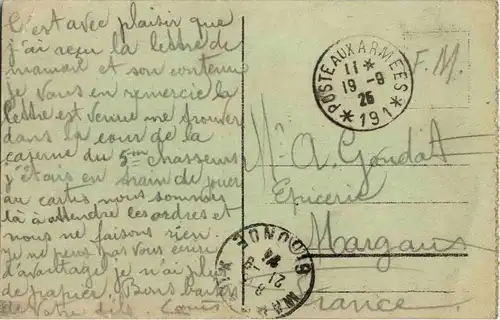 C'est avec plaisir que
j'ai reçu la lettre de
maman et son contenu
je vous en remercie la
lettre est venue me trouver
dans la cour de la
caserne du 5me chasseurs
j'étais en train de jouer
au cartes, nous sommes
là à attendre les ordres et
nous ne faisons rien.
Je ne peux pas vous écrire
d'avantage je n'ai plus
de papier. Bons baisers
de votre fils. Louis
POSTE AUX ARMEES
11 *
19 - 8
25
* 191 *
F.M.
Mr A. Goudat
Epicerie
Margaux
GIRONDE
21 - 8
France